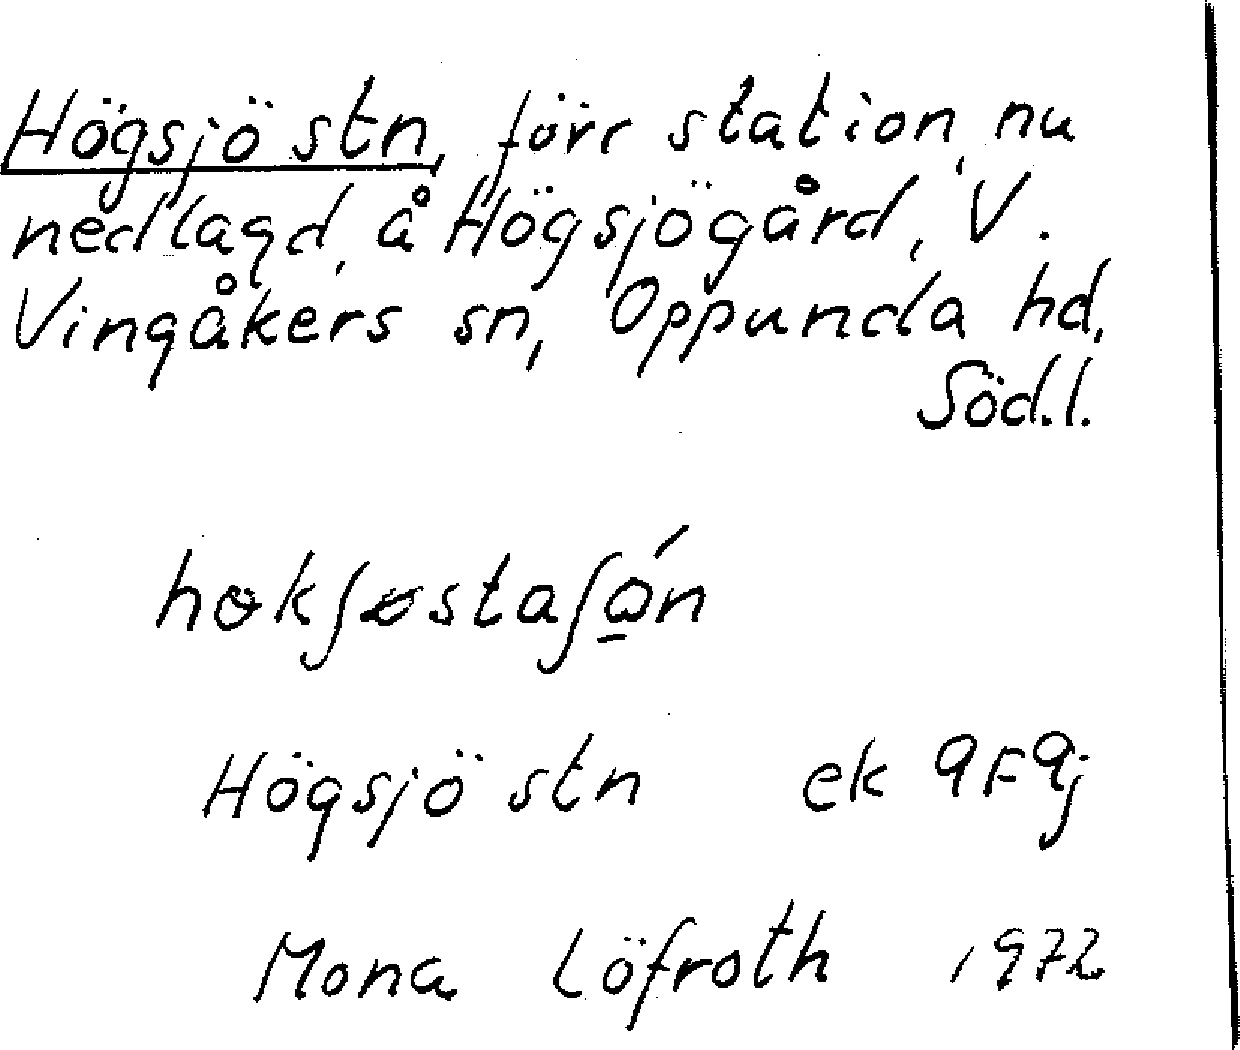 Högsjö stn, förr station, nu
nedlagd, å Högsjögård, V.
Vingåkers sn, Oppunda hd,
Söd.l.
Högsjö stn ek 9F9j
Mona Löfroth 1972